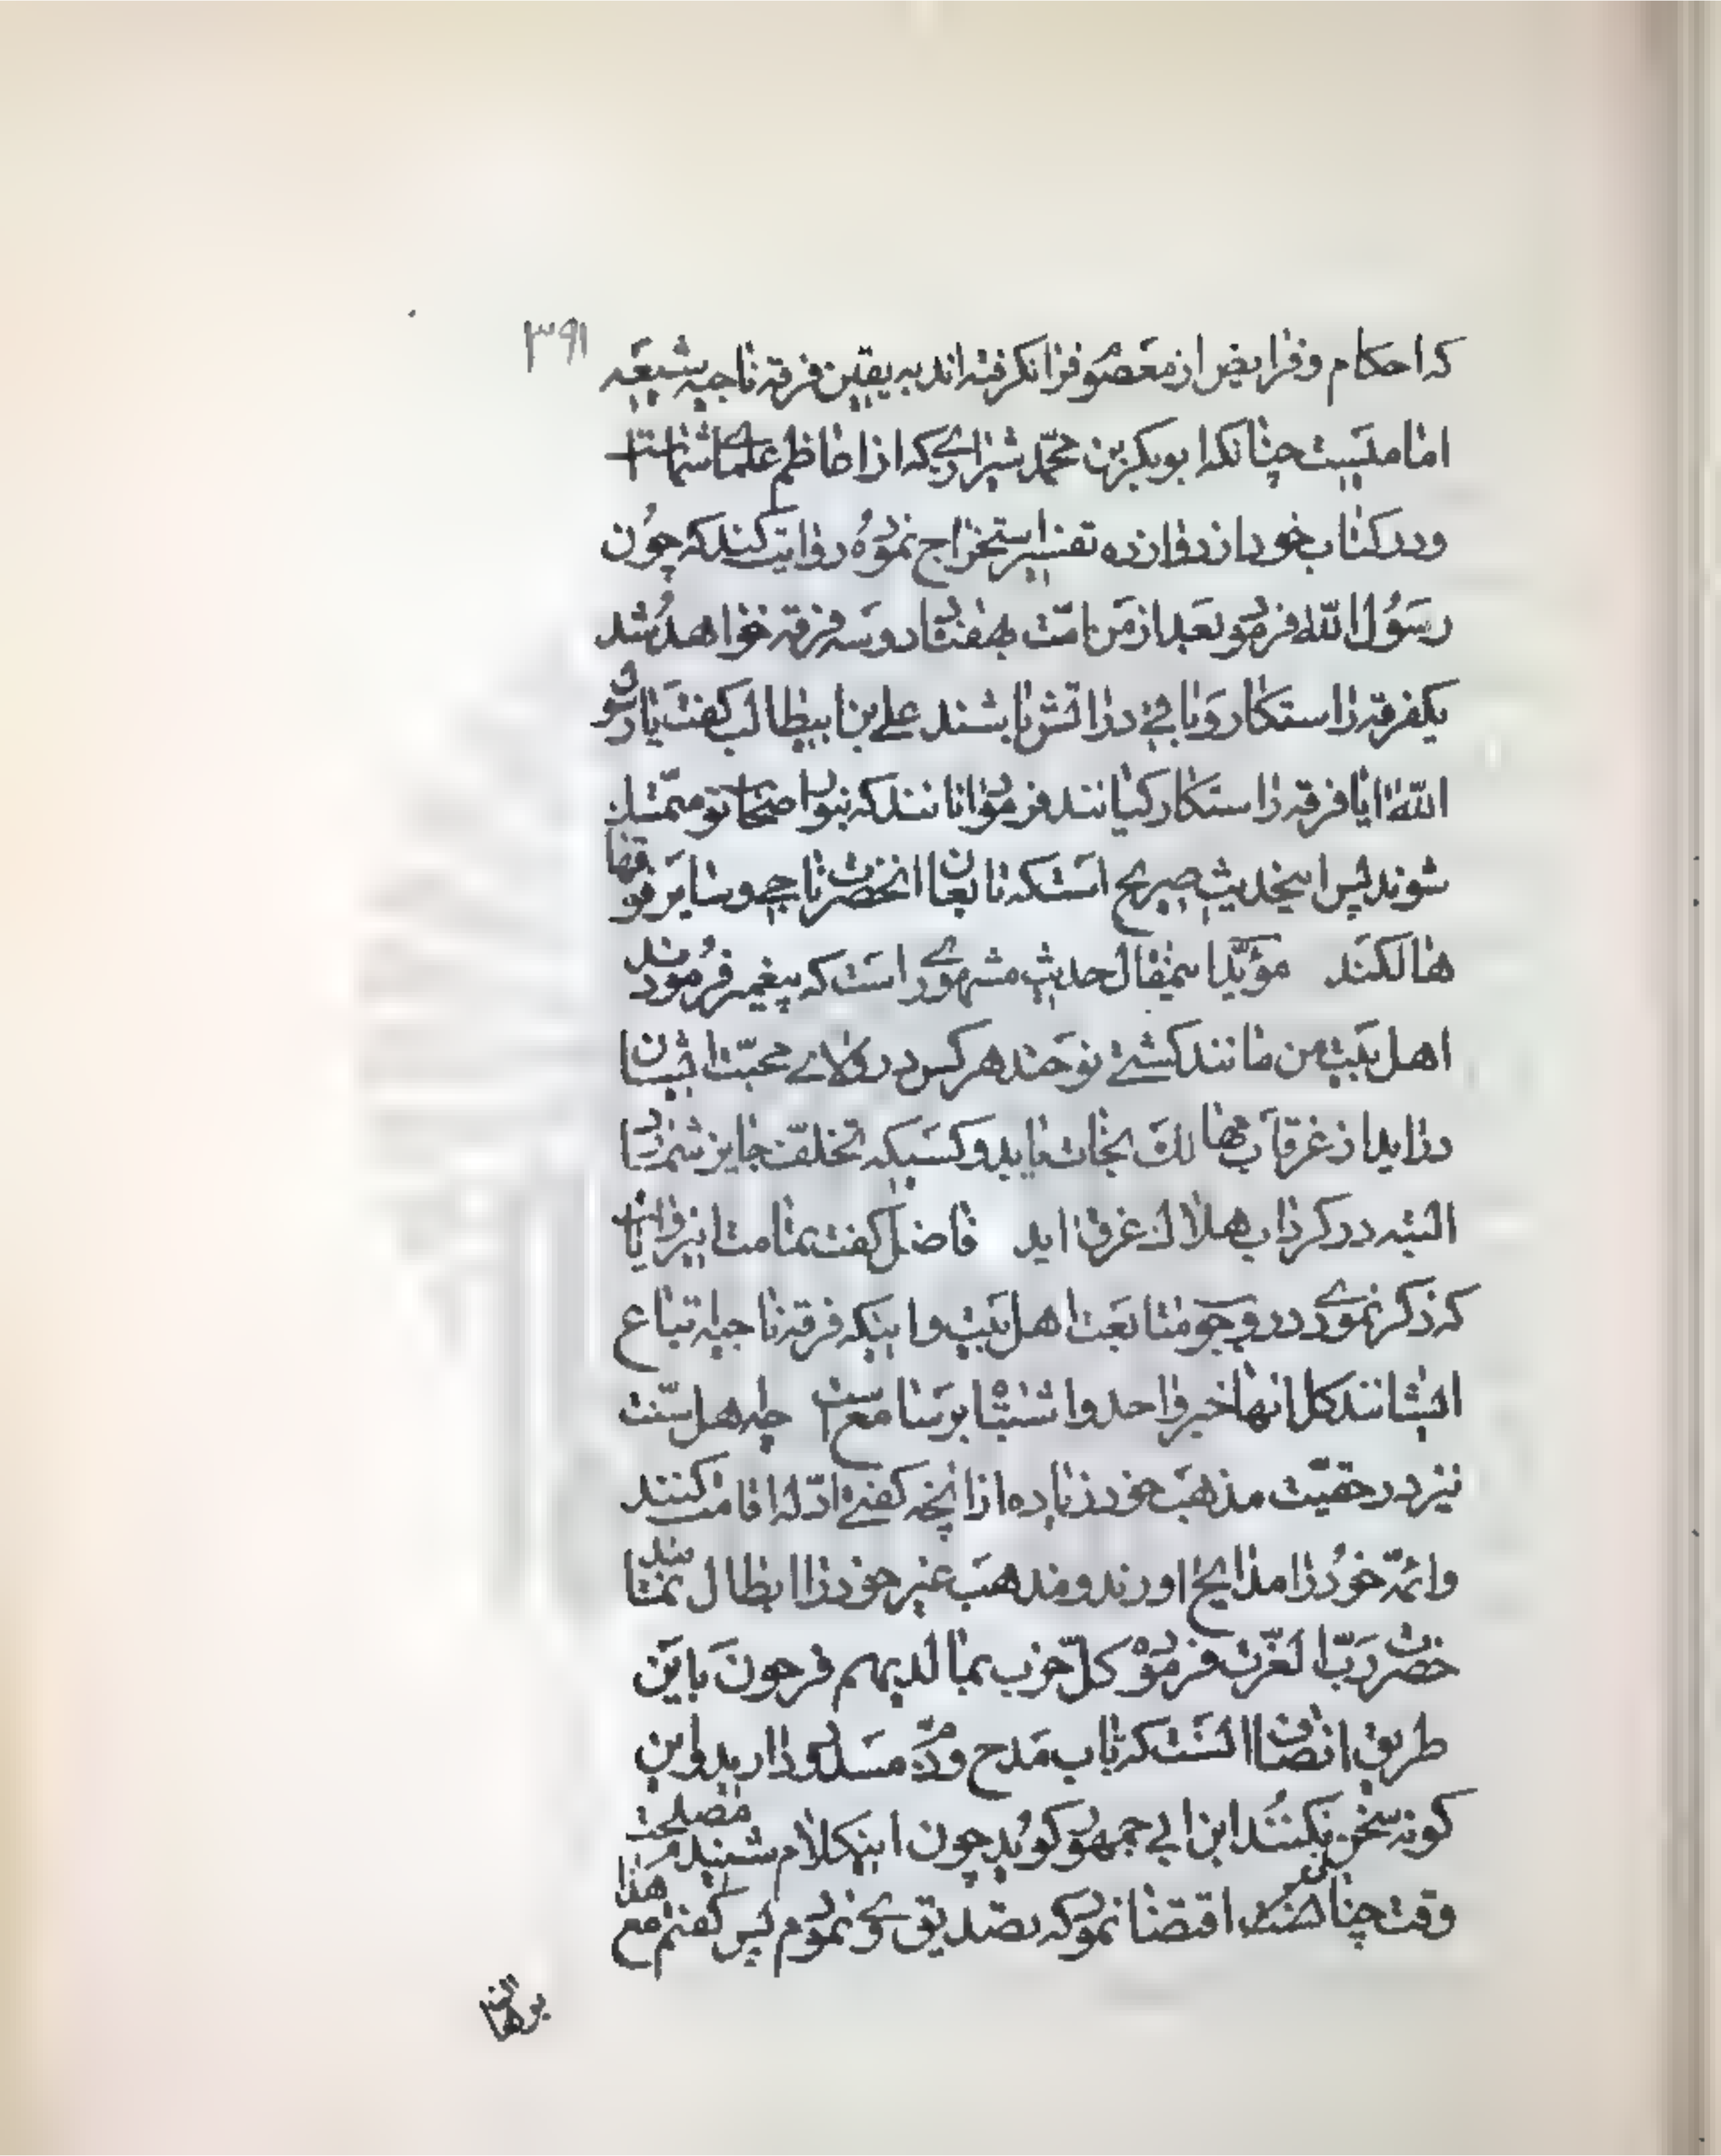 ۳۹۱
که احکام و فرایض از معصوم فرا نگرفته اند به یقین فرقه ناجیه شیعه
امامیست چنانکه ابوبکر بن محمد شیرازی که از اعاظم علمای شماست
و در کتاب خود از دوازده تفسیر استخراج نموده روایت کند که چون
رسول الله فرمود بعد از من امت بهفتاد و سه فرقه خواهد شد
یکفرقه رستکار و باقی در اتش باشند علی بن ابیطالب کفت یا رسول
الله ایا فرقه رستکار کیانند فرمود انانند که بتو و اصحاب تو متمسک
شوند پس اینحدیث صریح است که تابعان انحضرت ناجی و سایر فرقها
هالکند مؤید اینمقال حدیث مشهوری است که پیغمبر فرمودند
اهل بیت من مانند کشتی نوحند هر کس در ولای محبت ایشان
دراید از غرقاب مهالک نجات یابد و کسیکه تخلف جایز شمارد
البته در کرداب هلاک غرق اید فاضل کفت تمامت این روایات
که ذکر نمودی در وجوب متابعت اهل بیت و اینکه فرقه ناجیه اتباع
ایشانند کل انها خبر واحد و اشتباه بر سامع است چه اهل سنت
نیز در حقیت مذهب خود زیاده از انچه کفتی ادله اقامت کنند
و ائمه خود را مدایح اورند و مذهب غیر خود را ابطال نمایند
حضرت رب العزت فرموده کل حزب بما لدیهم فرحون باین
طریق انصاف انست که باب مدح و ذم مسدود دارید و این
کونه سخن نکنند ابن ابی جمهور کوید چون اینکلام شنیدم مصلحت
وقت چنان اقتضا نمود که تصدیق وی نمودم پس کفتم مع هذا
برهان